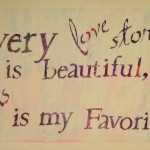 very love stor
is beautiful,
s is my Favori